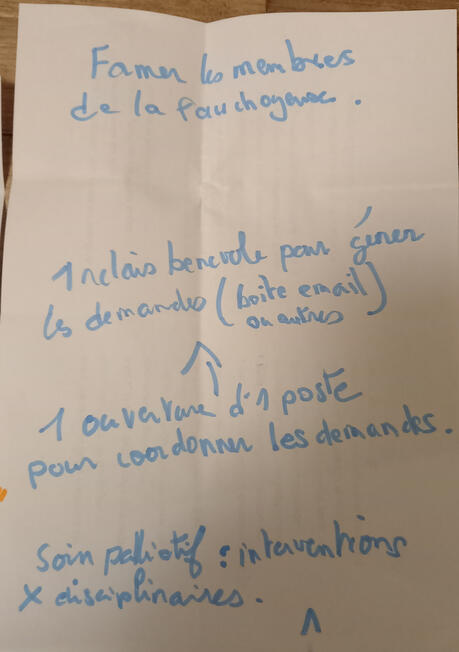 Famer les membres
de la
1 relais benevole pour gérer
les demandes (boite email)
ou autres
↑
1 ouverture d'1 poste
pour coordonner les demandes.
Soin palliatif : interventions
X disciplinaires.